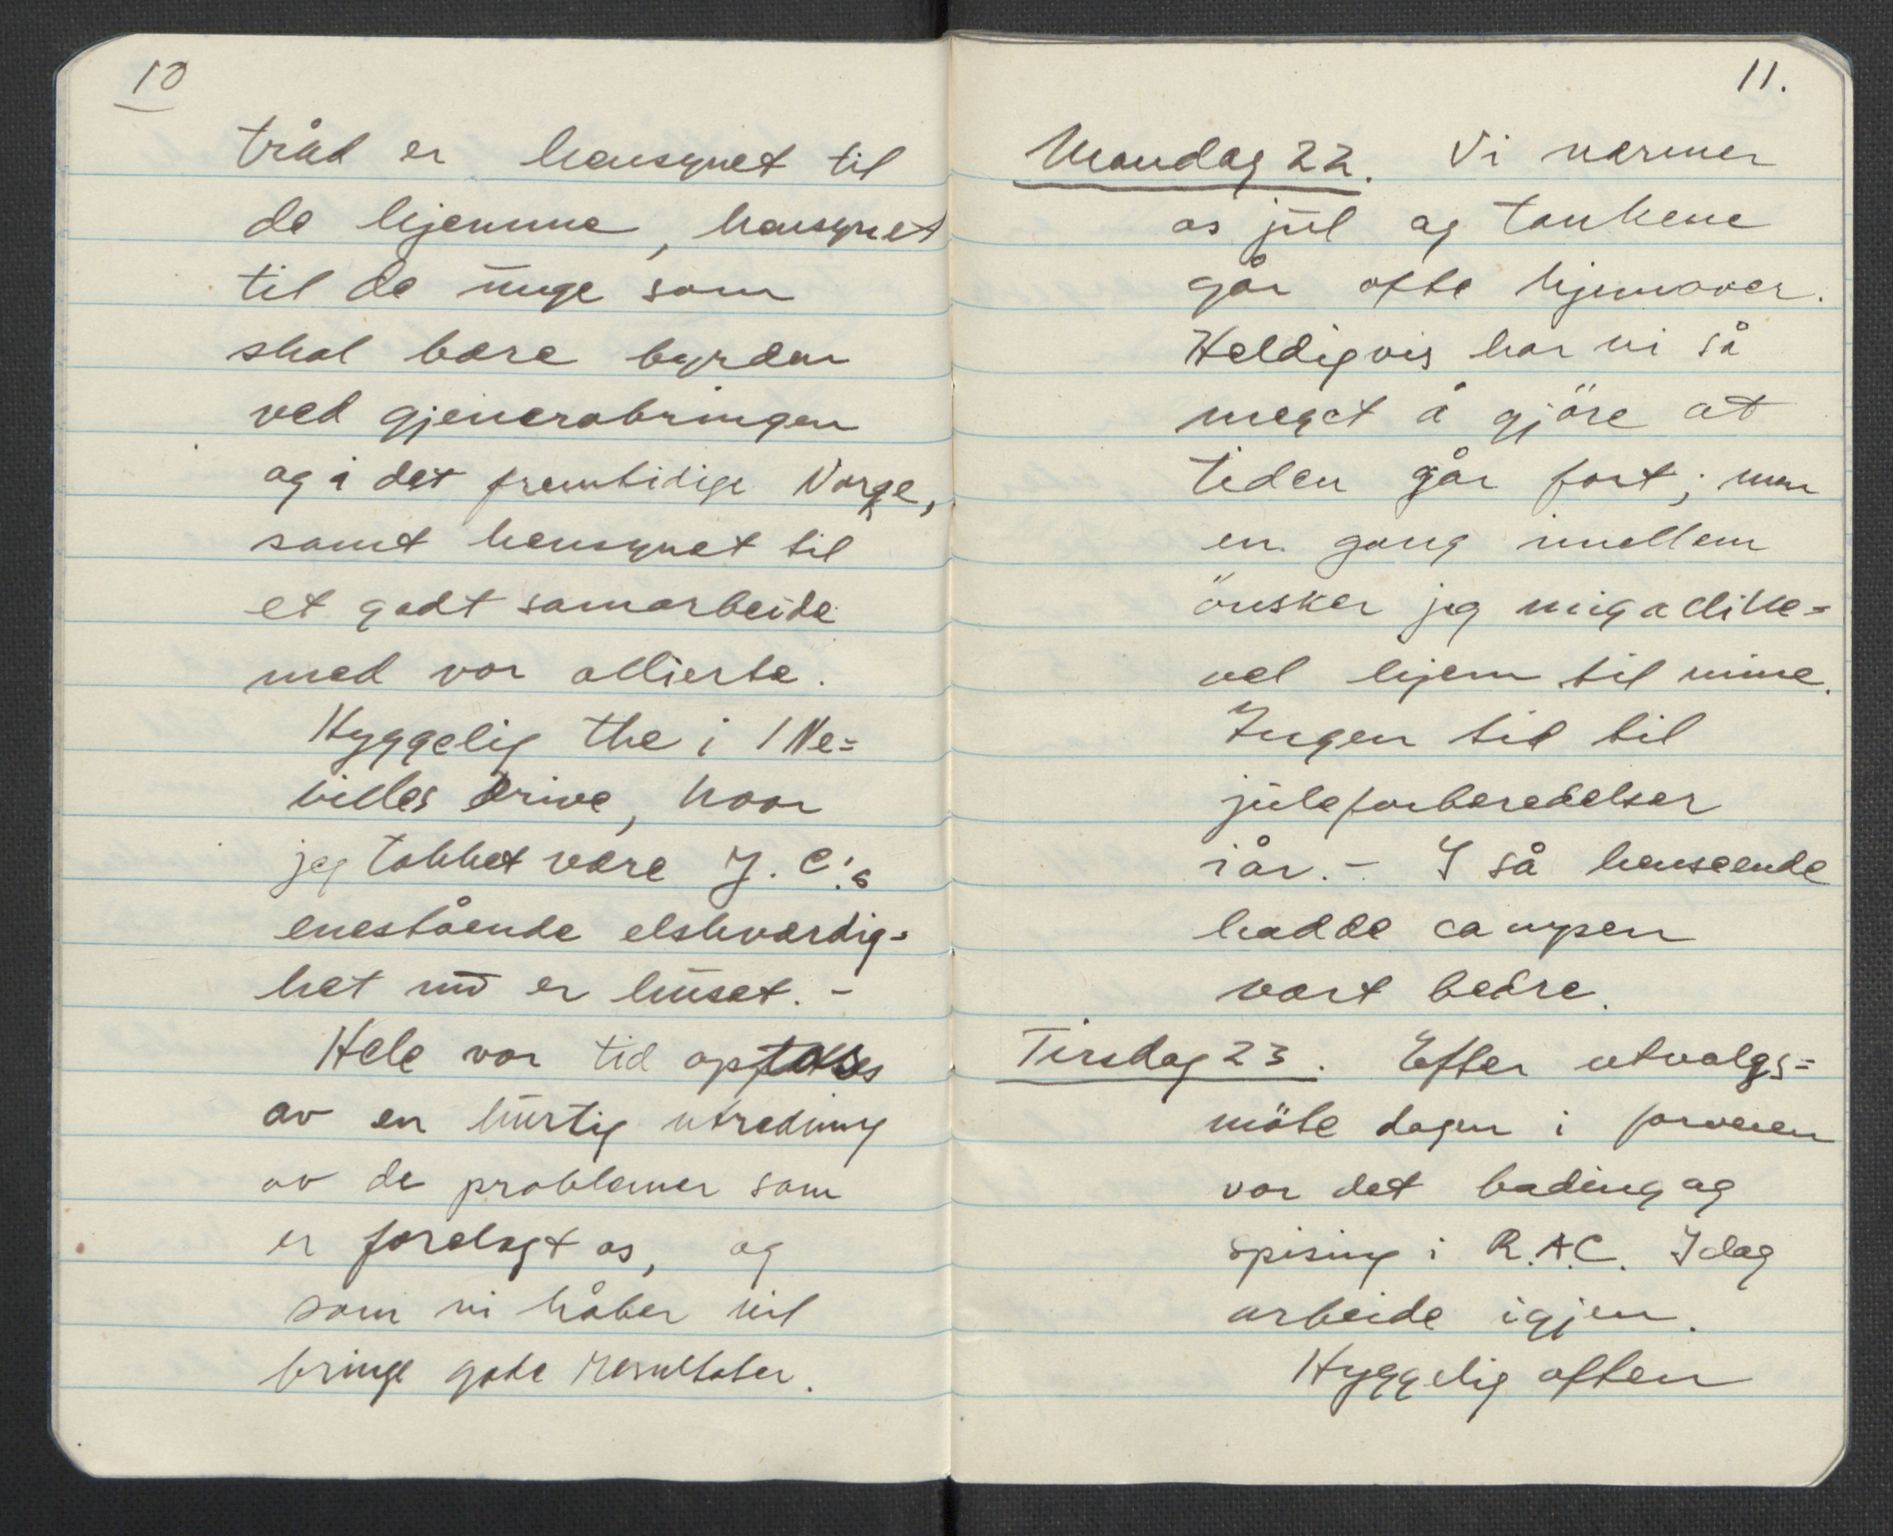 10
tråd er hensynet til
de hjemme, hensynet
til de unge som
skal bære byrden
ved gjenerobringen
og i det fremtidige Norge,
samt hensynet til
et godt samarbeide
med vor allierte.
Hyggelig the i 1 Ne=
villes Drive, hvor
jeg takket være J. C.'s
enestående elskværdig=
het nu er huset. -
Hele vor tid optas
av en hurtig utredning
av de problemer som
er forelagt os, og
som vi håber vil
bringe gode resultater.
11.
Mandag 22. Vi nærmer
os jul og tankene
går ofte hjemover.
Heldigvis har vi så
meget å gjöre at
tiden går fort; men
en gang imellem
önsker jeg mig allike=
vel hjem til mine.
Ingen tid til
juleforberedelser
iår. - I så henseende
hadde campen
vært bedre.
Tirsdag 23. Efter utvalgs=
möte dagen i forveien
var det bading og
spising i R.A.C. Idag
arbeide igjen.
Hyggelig aften